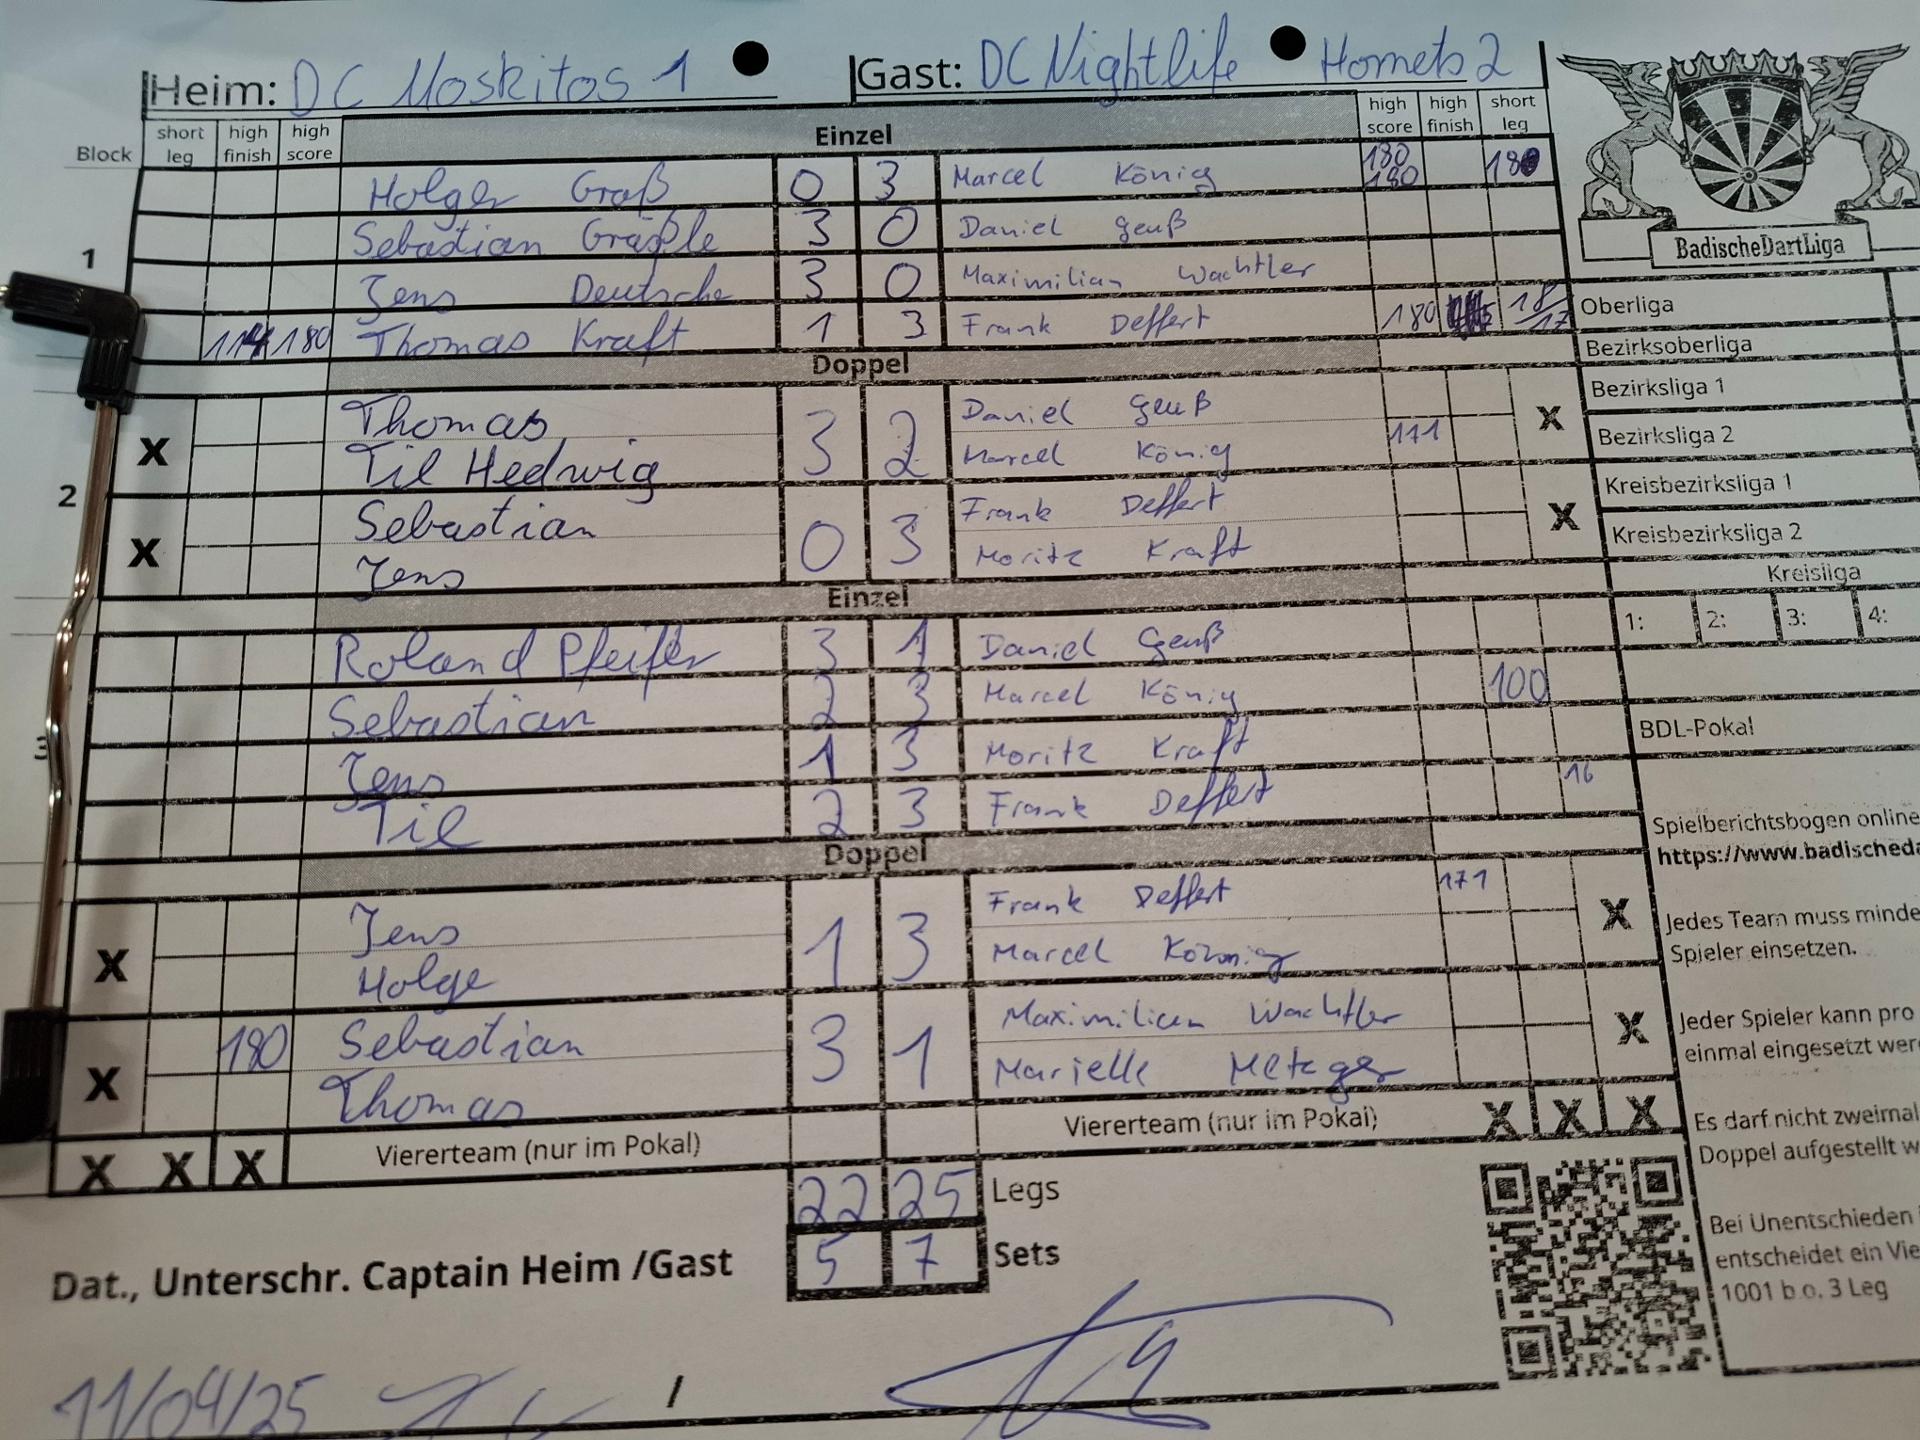 Heim: DC Moskitos 1 Gast: DC Nightlife Hornets 2
Block short leg high finish high score Einzel high score high finish short leg
Holger Graß 0 3 Marcel König 180 180 18
Sebastian Gräßle 3 0 Daniel Geuß
1 Jens Deutsche 3 0 Maximilian Wachtler
114 180 Thomas Kraft 1 3 Frank Deffert 180 18/17
Doppel
X Thomas 3 2 Daniel Geuß X
Til Hedwig Marcel König 171
2
X Sebastian 0 3 Frank Deffert X
Jens Moritz Kraft
Einzel
Roland Pfeifer 3 1 Daniel Geuß
Sebastian 2 3 Marcel König 100
3 Jens 1 3 Moritz Kraft
Til 2 3 Frank Deffert 16
Doppel
X Jens 1 3 Frank Deffert 171 X
Holge Marcel König
X 180 Sebastian 3 1 Maximilian Wachtler X
Thomas Marielle Metzger
X X X Viererteam (nur im Pokal) Viererteam (nur im Pokal) X X X
22 25 Legs
5 7 Sets
Dat., Unterschr. Captain Heim /Gast
11/04/25 /
BadischeDartLiga
Oberliga
Bezirksoberliga
Bezirksliga 1
Bezirksliga 2
Kreisbezirksliga 1
Kreisbezirksliga 2
Kreisliga
1: 2: 3: 4:
BDL-Pokal
Spielberichtsbogen online
https://www.badischeda
Jedes Team muss minde
Spieler einsetzen.
Jeder Spieler kann pro
einmal eingesetzt wer
Es darf nicht zweimal
Doppel aufgestellt w
Bei Unentschieden
entscheidet ein Vie
1001 b.o. 3 Leg